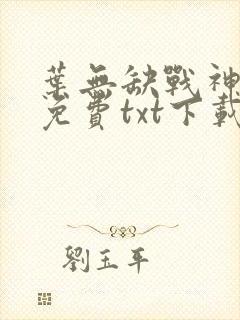 葉無缺戰神
免費txt下載
劉玉平